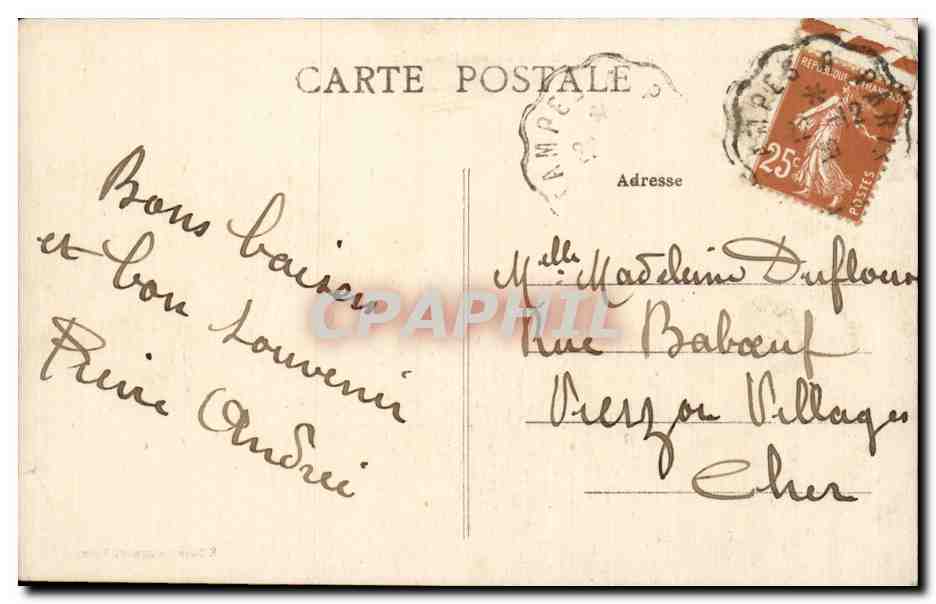 CARTE POSTALE
AMPES
AMPES A PARIS
REPUBLIQUE FRANCAISE
25c
POSTES
Adresse
Bons baisers
et bon souvenir
Pierre Andrée
Melle Madeleine Duflour
Rue Babœuf
Vierzon Villages
Cher
CPAPHIL